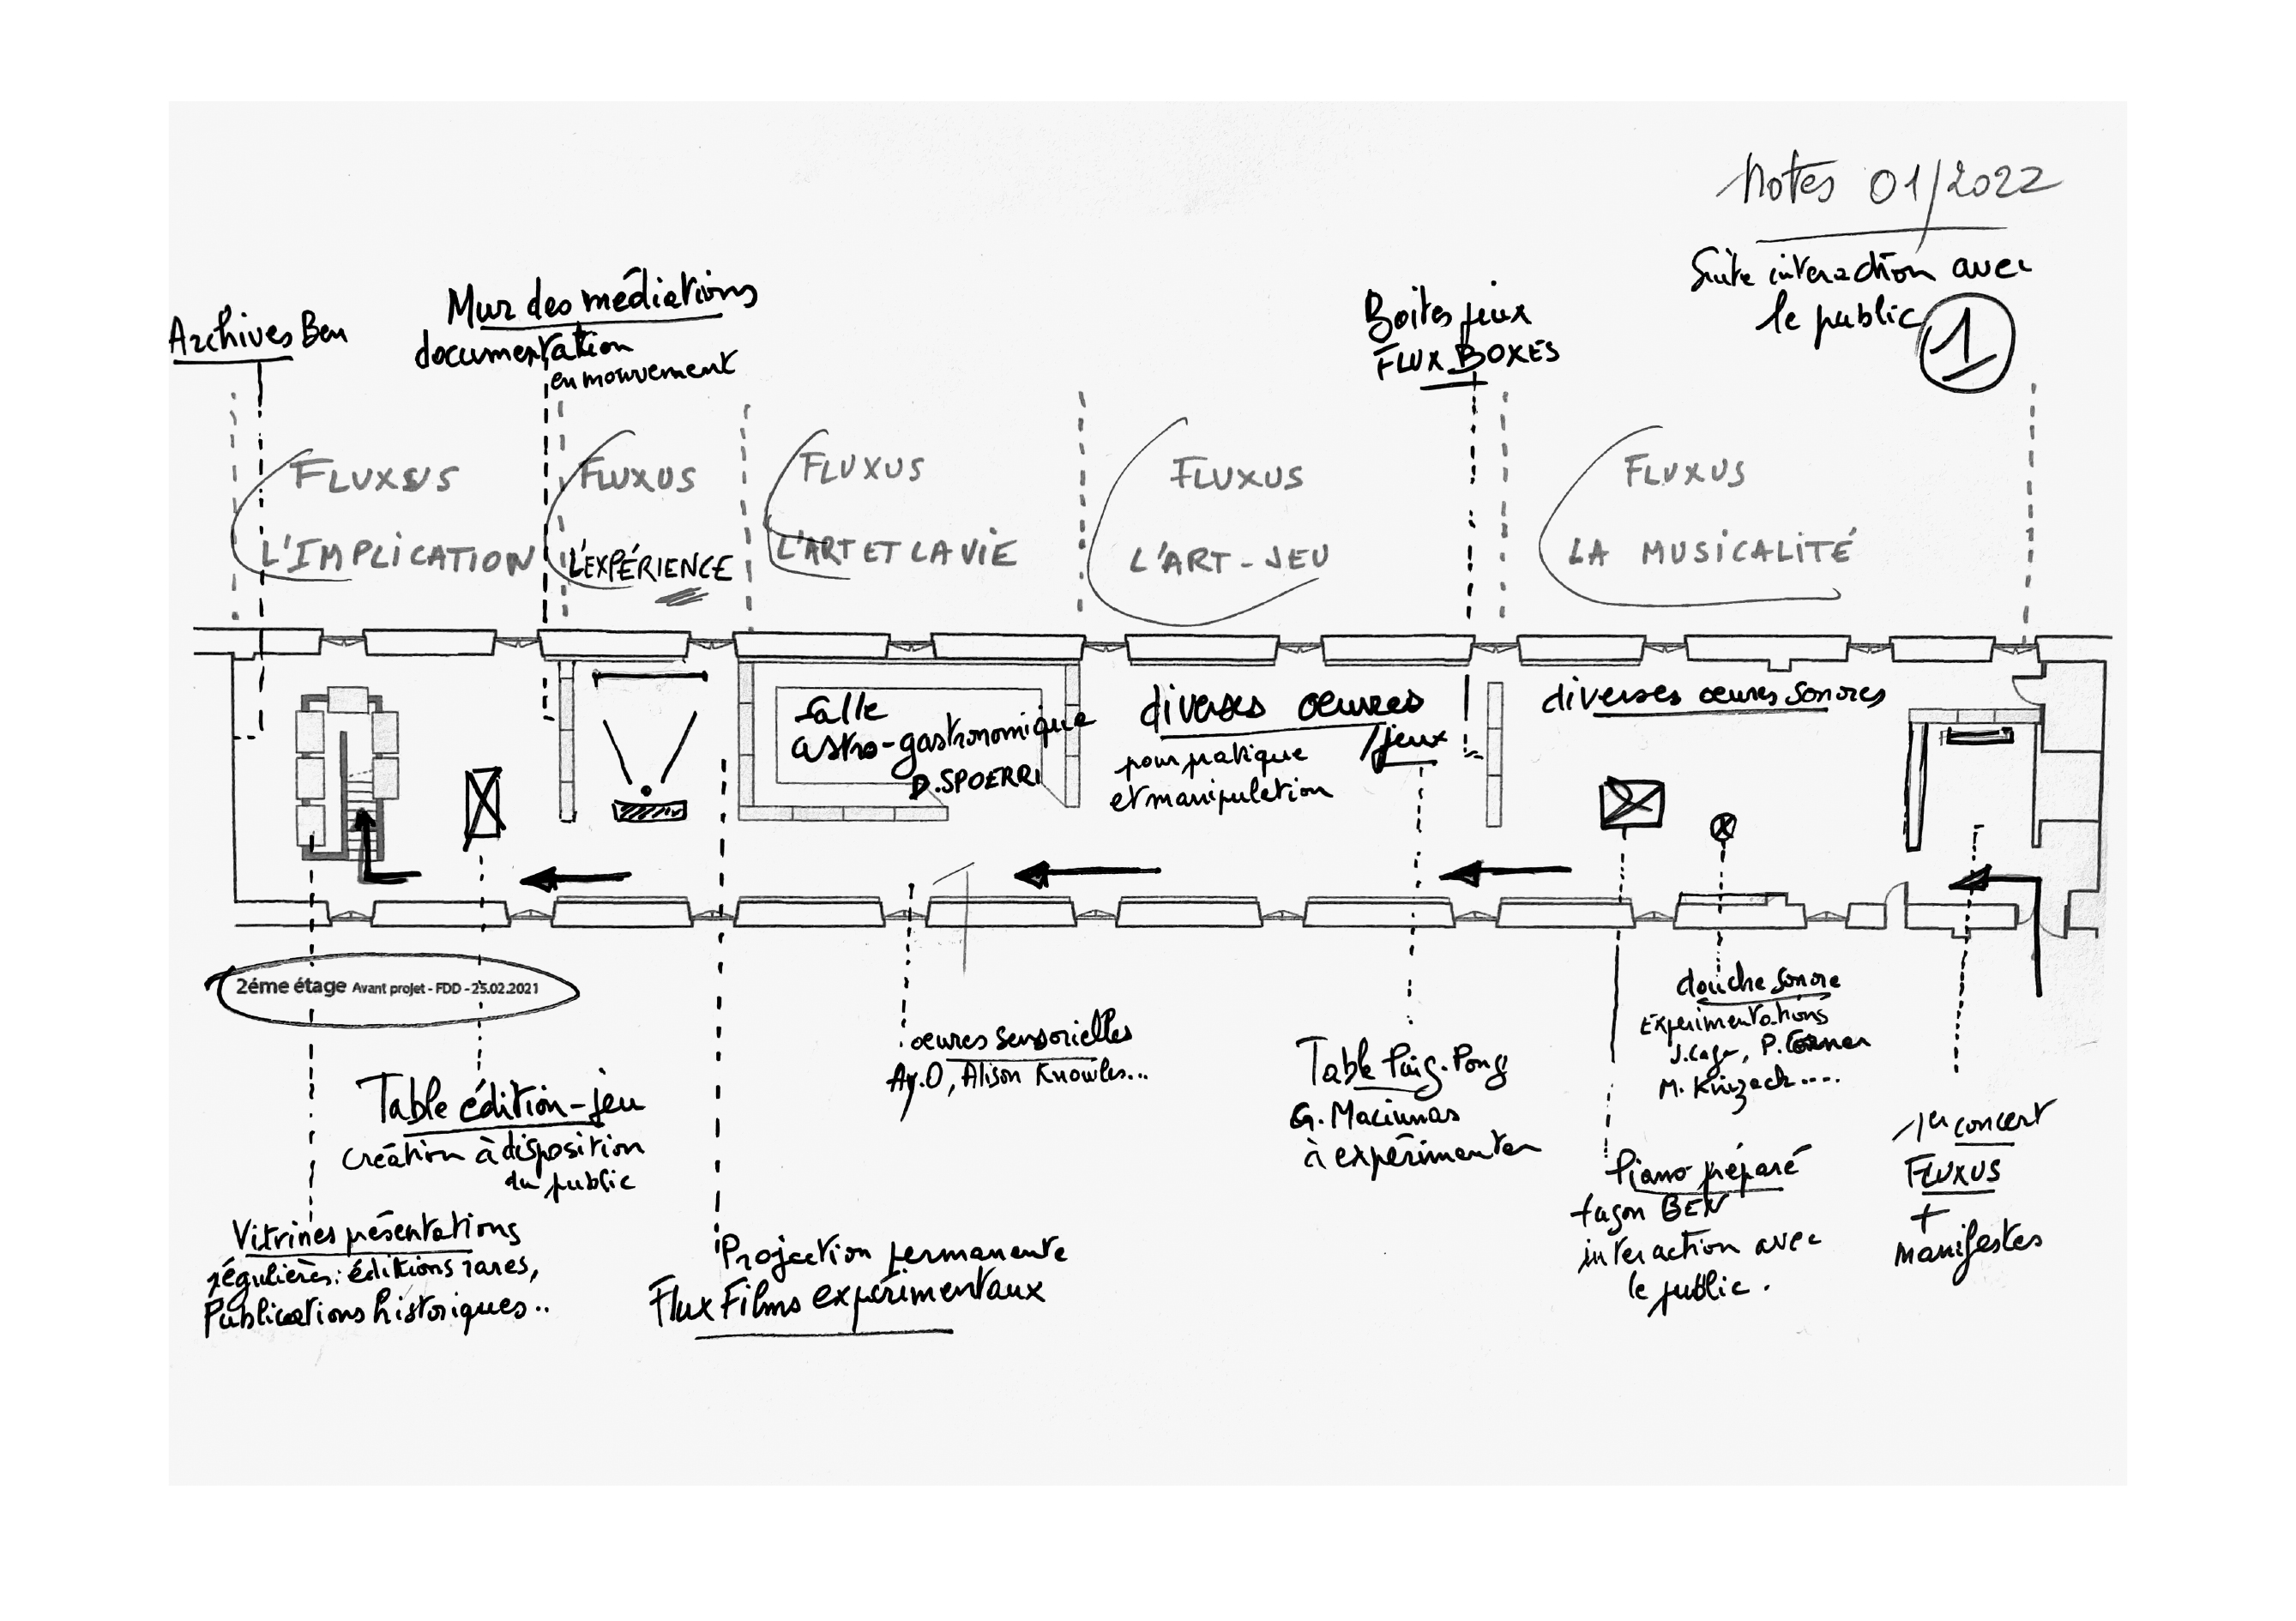 Notes 01/2022
Suite interaction avec
le public
1
Archives Ben
Mur des médiations
documentation
en mouvement
Boites jeux
FLUX BOXES
FLUXUS
L'IMPLICATION
FLUXUS
L'EXPÉRIENCE
FLUXUS
L'ART ET LA VIE
FLUXUS
L'ART-JEU
FLUXUS
LA MUSICALITÉ
Salle
astro-gastronomique
D. SPOERRI
diverses oeuvres
/jeux
pour pratique
et manipulation
diverses oeuvres sonores
2éme étage Avant projet - FDD - 25.02.2021
Table édition-jeu
Création à disposition
du public
Vitrines présentations
régulières: éditions rares,
Publications historiques..
Projection permanente
Flux Films expérimentaux
oeuvres sensorielles
Ay.O, Alison Knowles...
Table Ping-Pong
G. Maciunas
à expérimenter
douche sonore
Expérimentations
J. Cage, P. Corner
M. Knizack....
Piano préparé
façon BEN
interaction avec
le public.
1er concert
FLUXUS
+
manifestes